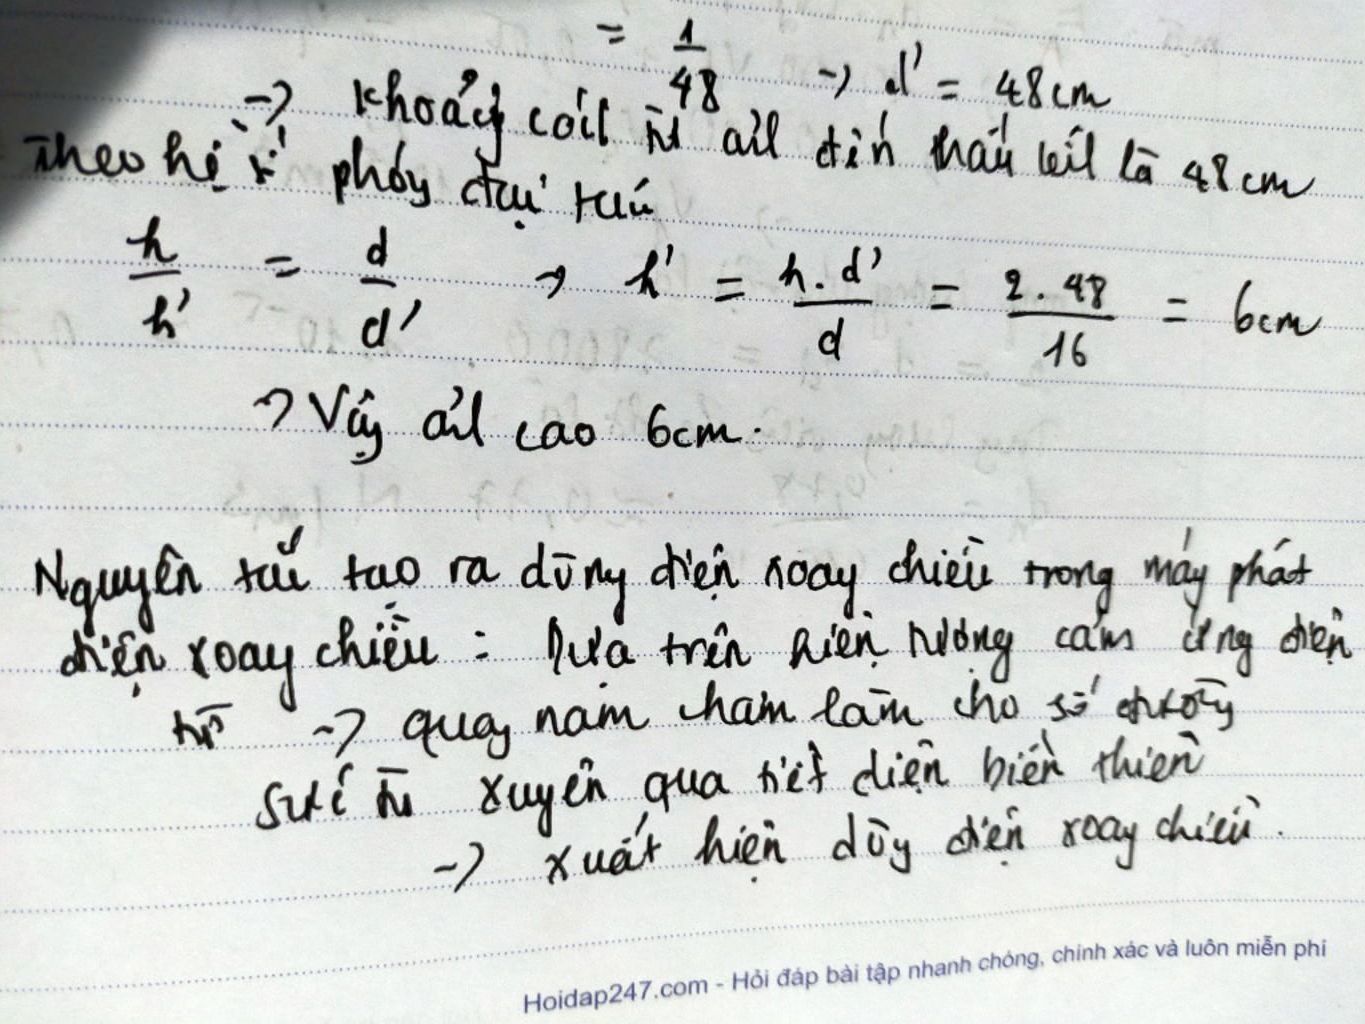 = 1/48 -> d' = 48cm
-> Khoảng cách từ ảnh đến thấu kính là 48cm
Theo hệ số phóng đại
h/h' = d/d' -> h' = h.d'/d = 2.48/16 = 6cm
-> Vậy ảnh cao 6cm.
Nguyên tắc tạo ra dòng điện xoay chiều trong máy phát
điện xoay chiều : Dựa trên hiện tượng cảm ứng điện
từ -> quay nam châm làm cho số đường
sức từ xuyên qua tiết diện biến thiên
-> xuất hiện dòng điện xoay chiều.
Hoidap247.com - Hỏi đáp bài tập nhanh chóng, chính xác và luôn miễn phí